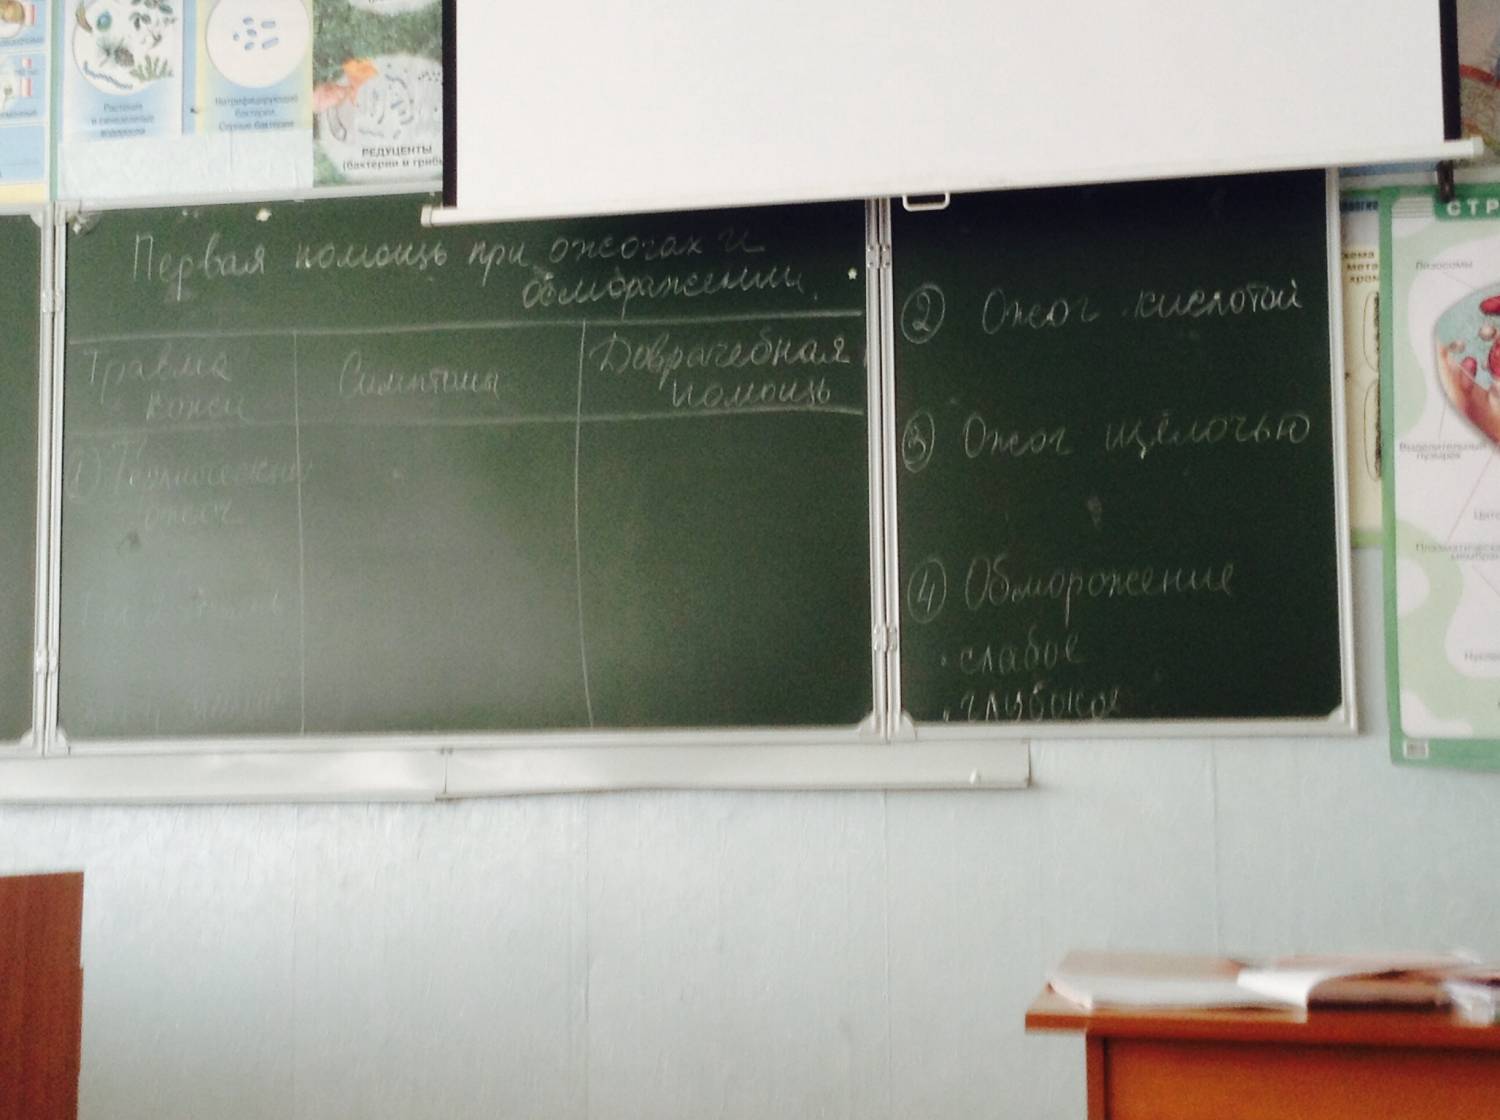 Растения
и синезеленые
водоросли
Нитрифицирующие
бактерии.
Серные бактерии
РЕДУЦЕНТЫ
(бактерии и грибы
Первая помощь при ожогах и
обморажении.
Травма
кожи
Симптомы
Доврачебная
помощь
1) Термический
ожог
② Ожог кислотой
③ Ожог щёлочью
④ Обморожение
· слабое
· глубокое
СТР
Лизосомы
Выделительный
пузырёк